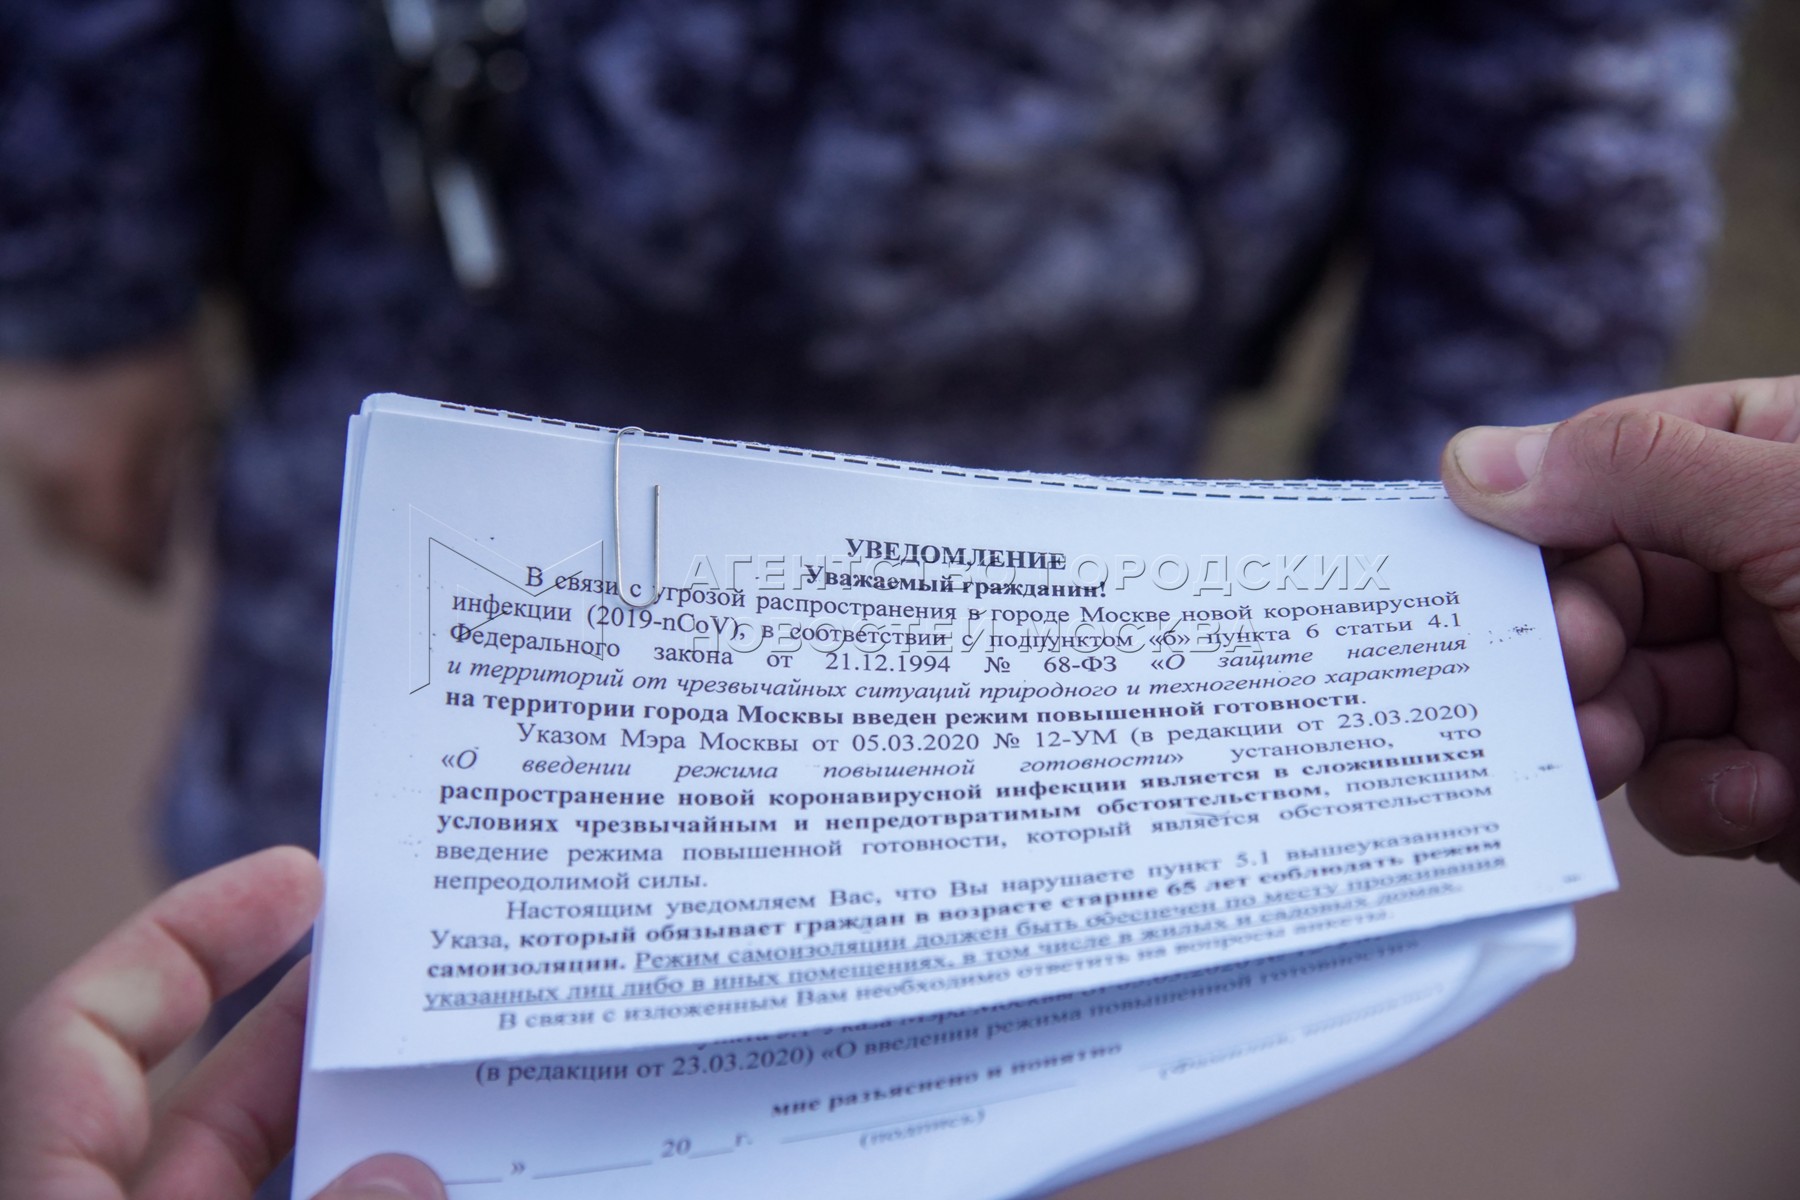 УВЕДОМЛЕНИЕ
Уважаемый гражданин!
В связи с угрозой распространения в городе Москве новой коронавирусной
инфекции (2019-nCoV), в соответствии с подпунктом «б» пункта 6 статьи 4.1
Федерального закона от 21.12.1994 № 68-ФЗ «О защите населения
и территорий от чрезвычайных ситуаций природного и техногенного характера»
на территории города Москвы введен режим повышенной готовности.
Указом Мэра Москвы от 05.03.2020 № 12-УМ (в редакции от 23.03.2020)
«О введении режима повышенной готовности» установлено, что
распространение новой коронавирусной инфекции является в сложившихся
условиях чрезвычайным и непредотвратимым обстоятельством, повлекшим
введение режима повышенной готовности, который является обстоятельством
непреодолимой силы.
Настоящим уведомляем Вас, что Вы нарушаете пункт 5.1 вышеуказанного
Указа, который обязывает граждан в возрасте старше 65 лет соблюдать режим
самоизоляции. Режим самоизоляции должен быть обеспечен по месту проживания
указанных лиц либо в иных помещениях, в том числе в жилых и садовых домах.
В связи с изложенным Вам необходимо ответить на вопросы анкеты.
Указа Мэра Москвы от 05.03.2020
(в редакции от 23.03.2020) «О введении режима повышенной готовности»
мне разъяснено и понятно
(подпись)
» 20 г.
АГЕНТСТВО ГОРОДСКИХ
НОВОСТЕЙ МОСКВА